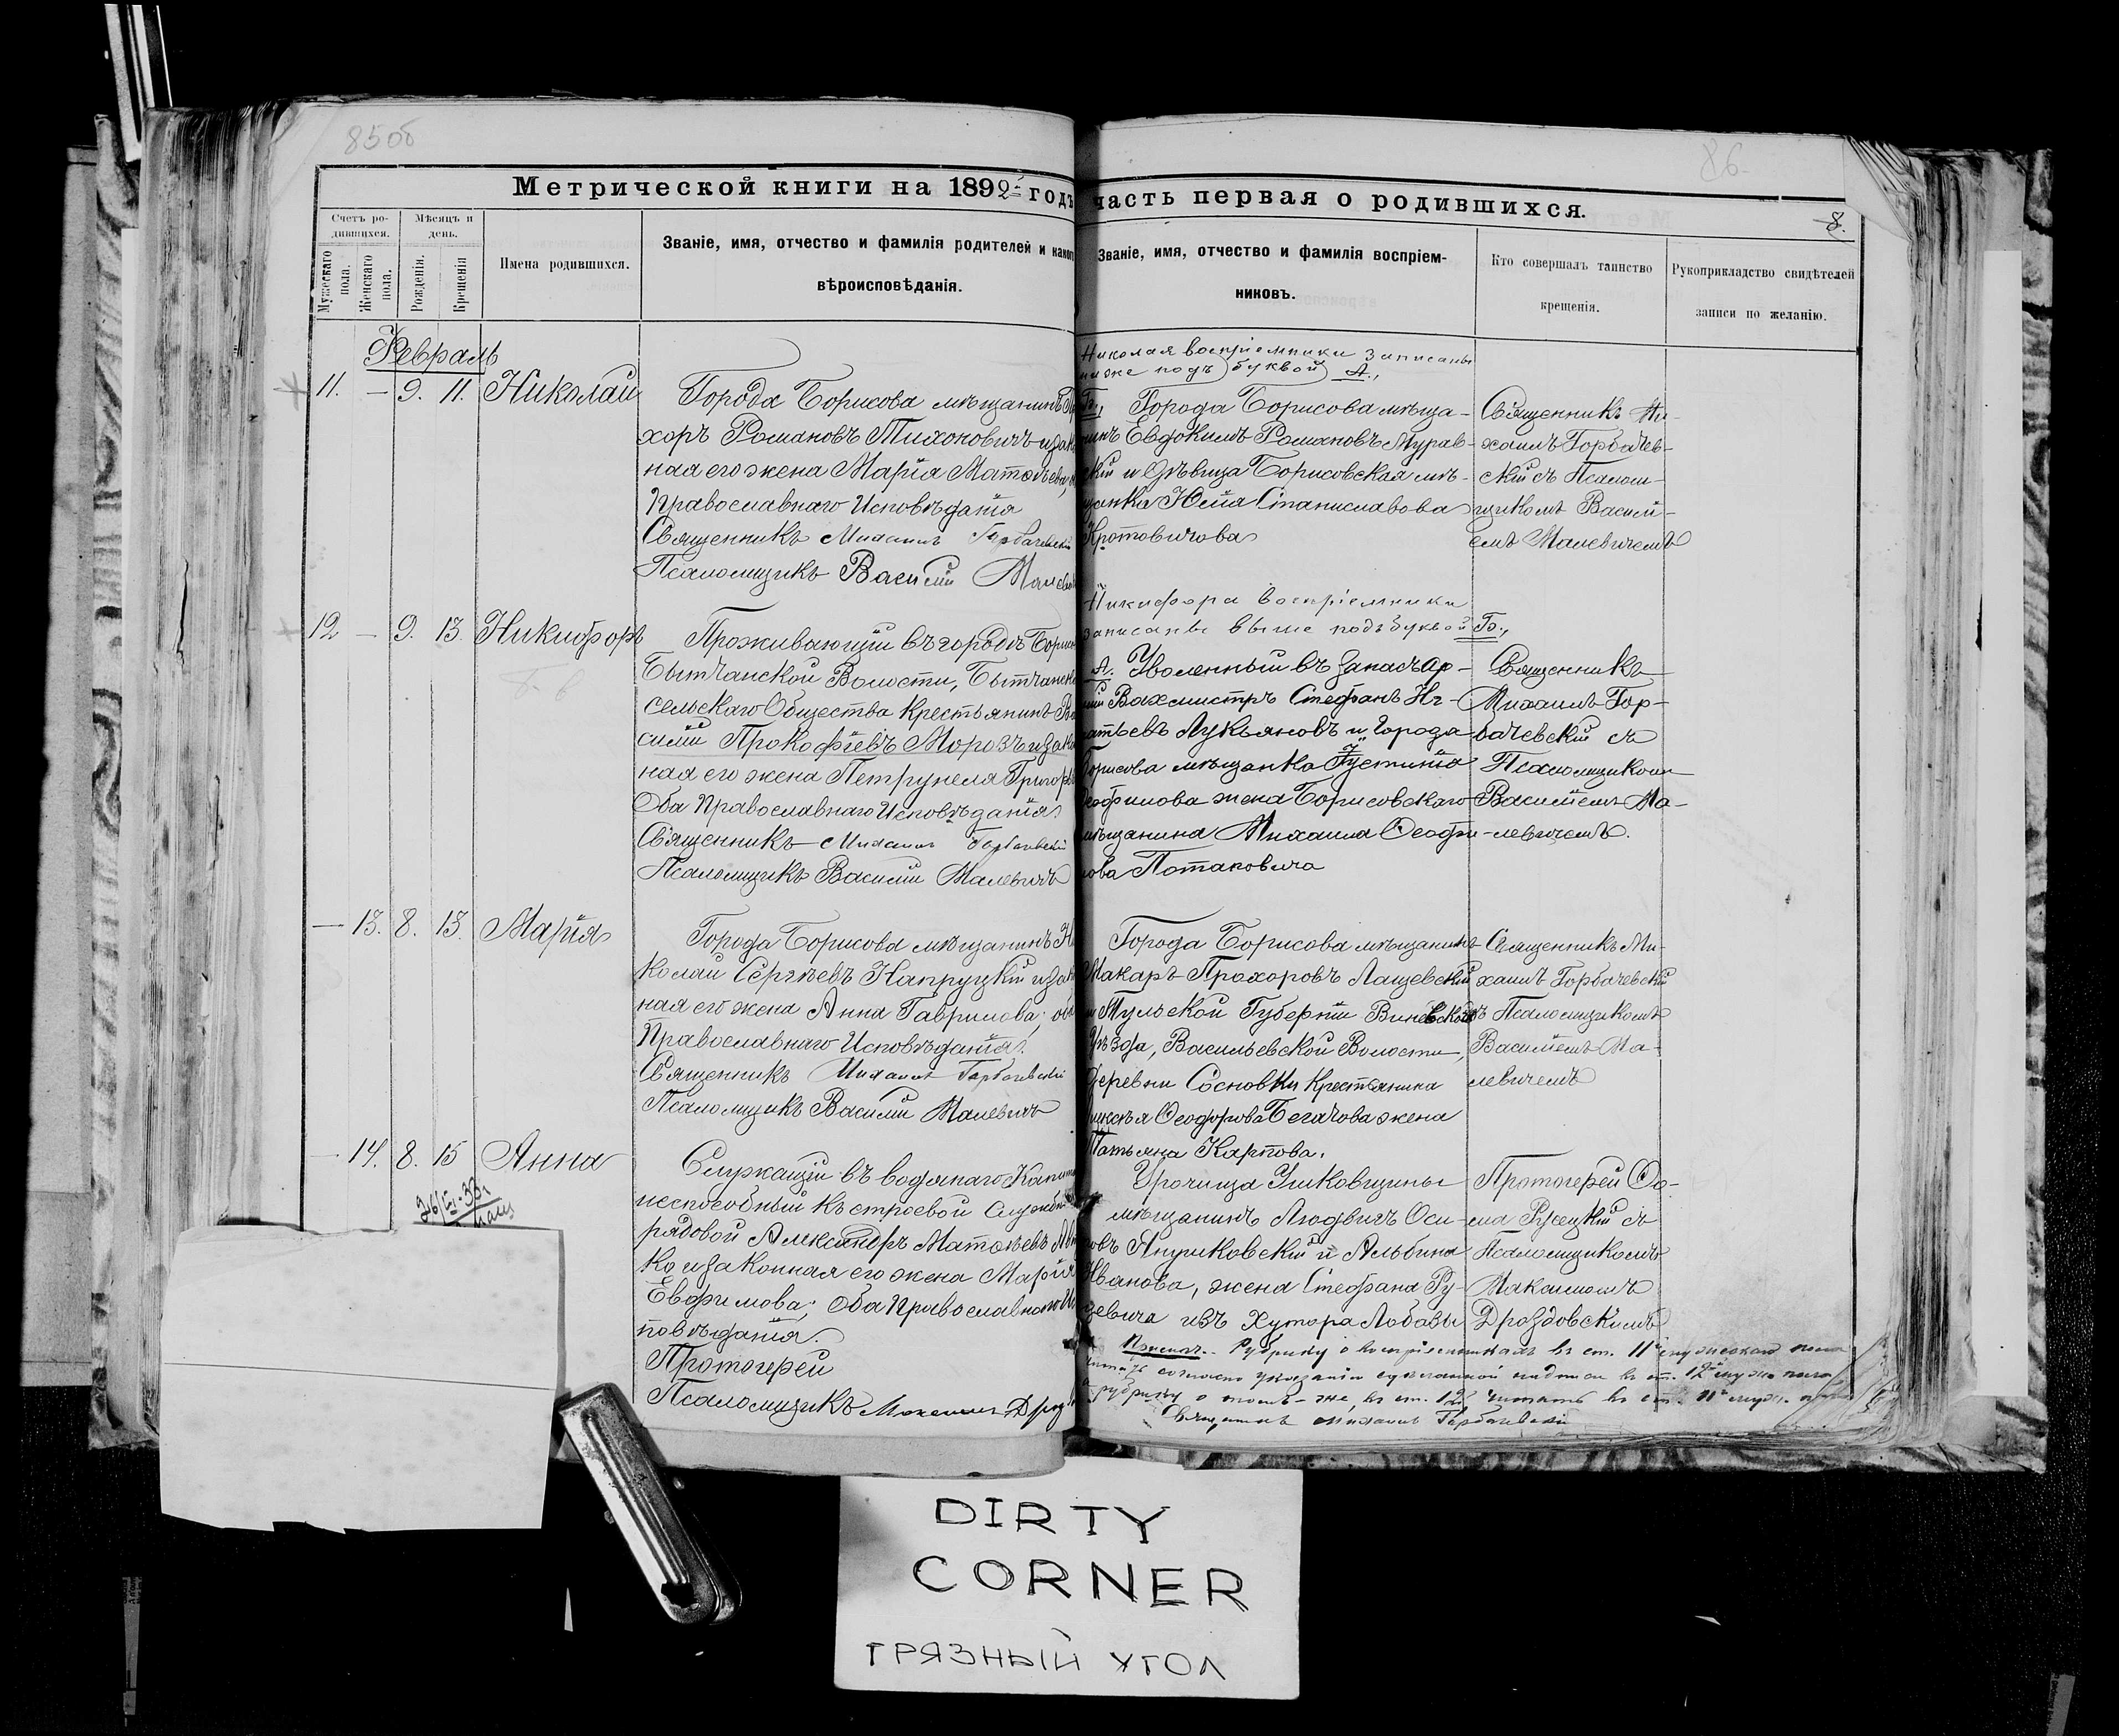 85об
86.
Метрической книги на 1892й годъ
часть первая о родившихся.
8.
Счетъ ро-
дившихся.
Мужескаго пола.
Женскаго пола.
Мѣсяцъ и
день.
Рожденія.
Крещенія
Имена родившихся.
Званіе, имя, отчество и фамилія родителей и
вѣроисповѣданія.
Званіе, имя, отчество и фамилія воспріем-
никовъ.
Кто совершалъ таинство
крещенія.
Рукоприкладство свидѣтелей
записи по желанію.
Февраль
11. — 9. 11. Николай
Города Борисова мѣщанинъ
хоръ Романовъ Тихоновичъ и
ная его жена Марія Матѳѣева,
Православнаго Исповѣданія
Священникъ Михаилъ Горбачевскій
Псаломщикъ Василій
Николая воспріемники записаны
ниже подъ буквой А.,
Б., Города Борисова мѣща-
нинъ Евдокимъ Романовъ Мурав-
скій и дѣвица Борисовская мѣ-
щанка Юлія Станиславова
Кротовичова
Священникъ Ми-
хаилъ Горбачев-
скій съ Псалом-
щикомъ Василі-
емъ Малевичемъ
12 — 9. 13. Никифоръ
Проживающій въ городѣ
Бытчанской Волости,
сельскаго Общества крестьянинъ
силій Прокофіевъ Морозъ и
ная его жена Петрунеля
Оба Православнаго Исповѣданія
Священникъ Михаилъ Горбачевскій
Псаломщикъ Василій Малевичъ
Никифора воспріемники
записаны выше подъ буквой Б.,
А. Уволенный въ запасъ ар-
міи Вахмистръ Стефанъ Иг-
натьевъ Лукьяновъ и города
Борисова мѣщанка Іустинія
Ѳеофилова жена Борисовскаго
мѣщанина Михаила Ѳеофи-
лова Потаповича
Священникъ
Михаилъ Гор-
бачевскій съ
Псаломщикомъ
Василіемъ Ма-
левичемъ.
— 13. 8. 13. Марія
Города Борисова мѣщанинъ Ни
колай Сергѣевъ Напруцкій и
ная его жена Анна Гаврилова; оба
Православнаго Исповѣданія.
Священникъ Михаилъ Горбачевскій
Псаломщикъ Василій Малевичъ
Города Борисова мѣщанинъ
Макаръ Прохоровъ Лащевскій
и Тульской Губерніи Веневской
Уѣзда, Васильевской Волости,
деревни Сосновки крестьянина
Алексѣя Ѳеодорова Бегачова жена
Татьяна Карпова.
Священникъ Ми-
хаилъ Горбачевскій
съ Псаломщикомъ
Василіемъ Ма-
левичемъ
— 14. 8. 15 Анна
Служащій въ водянаго
неспособный къ строевой службѣ
рядовой Александръ Матѳѣевъ
ко и законная его жена Марія
Евфимова; Оба Православнаго Ис
повѣданія.
Протоіерей
Псаломщикъ Максимъ
Урочища Ушковщины
мѣщанинъ Людвигъ Оси-
повъ Янушковскій и Альбина
Иванова, жена Стефана Ру-
цевича изъ Хутора Лобазы
Протоіерей Ѳо-
ма Рущкій съ
Псаломщикомъ
Максимомъ
Дроздовскимъ
Рубрику о воспріемникахъ въ ст. 11й мужескаго пола
читать согласно указанія сдѣланной надписи въ ст. 12й муж. пола
а рубрику о томъ-же, въ ст. 12й читать въ ст. 11й муж. пола
Священникъ Михаилъ Горбачевскій
DIRTY
CORNER
ГРЯЗНЫЙ УГОЛ